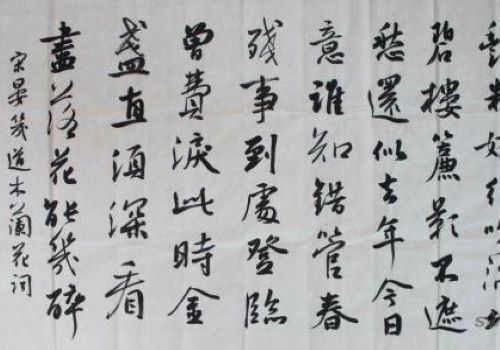 碧樓簾影不遮
愁還似去年今日
意誰知錯管春
殘事到處登臨
曾費淚此時金
盞直須深看
盡落花能幾醉
宋晏幾道木蘭花詞